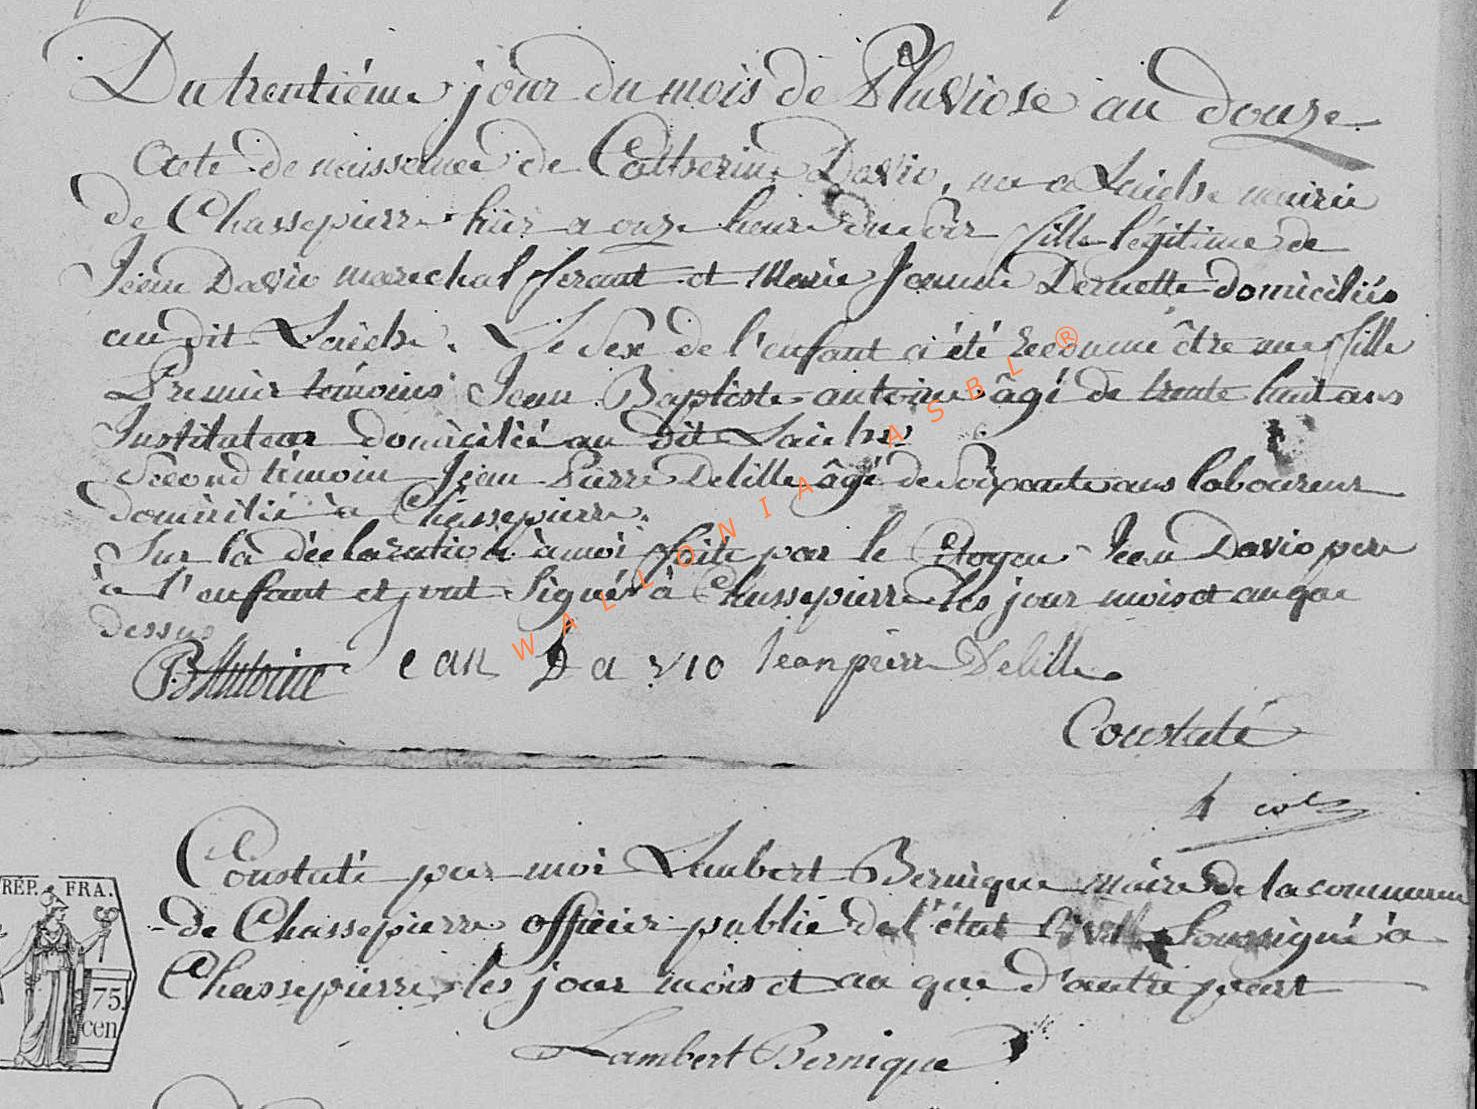 Du trentième jour du mois de Pluviose an douze
Acte de naissance de Catherine Davio, née a Laiche mairie
de Chassepierre hier a onze heure du soir fille légitime de
Jean Davio marechal ferant et Marie Jeanne Dernette domiciliés
au dit Laiche. Le Sex de l'enfant a été reconnue être une fille
Premier témoins Jean Baptiste antoine âgé de trente huit ans
Instituteur domicilié au dit Laiche
Second témoin Jean Pierre Delille âgé de soixante ans laboureur
domicilié à Chassepierre.
Sur la déclaration à moi faite par le Citoyen Jean Davio pere
à l'enfant et ont signés à Chassepierre les jour mois et an que
dessus
ean Davio Jean peirr Delille
Constaté
WALLONIA ASBL ®
4
Constaté par moi Lambert Bernique maire de la commune
de Chassepierre officier public de l'état Civille soussigné à
Chassepierre les jour mois et an que d'autre part
Lambert Bernique
RÉP. FRA.
75
cen